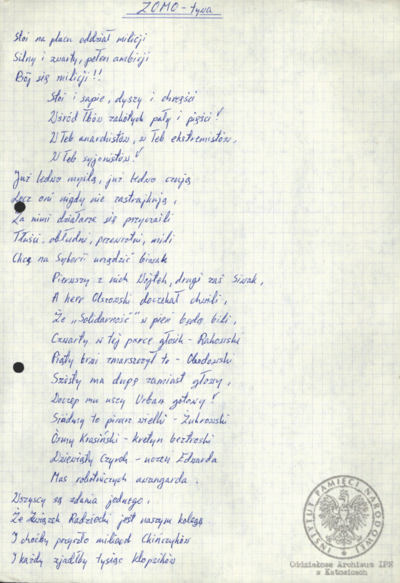 ZOMO - tywa
Stoi na placu oddział milicji
Silny i zwarty, pełen ambicji
Bój się milicji!!
Stoi i sapie, dyszy i chrzęści
Wśród tłów zakutych pały i pięści!
W łeb anarchistów, w łeb ekstremistów,
W łeb syjonistów!
Już ledwo myślą, już ledwo czują
Lecz oni nigdy nie zastrajkują,
Za nimi działacze się przyczaili
Tłuści, obłudni, przewrotni, mili
Chcą na Syberii urządzić biwak
Pierwszy z nich Wojtek, drugi zaś Siwak,
A herr Olszowski doczekał chwili,
Że "Solidarność" w pień będą bili,
Czwarty w tej parce głośik - Rakowski
Piąty brwi zmarszczył to - Obodowski
Szósty ma dupę zamiast głowy,
Doczep mu uszy Urban gotowy!
Siódmy to pisarz wielki - Żukrowski
Ósmy Krasiński - kretyn beztroski
Dziewiąty Czyrek - uczeń Edwarda
Mas robotniczych awangarda.
Wszyscy są zdania jednego,
Że Związek Radziecki jest naszym kolegą
I choćby przyszło miliard Chińczyków
I każdy zjadłby tysiąc klopsików
INSTYTUT PAMIĘCI NARODOWEJ
Oddziałowe Archiwum IPN
w Katowicach